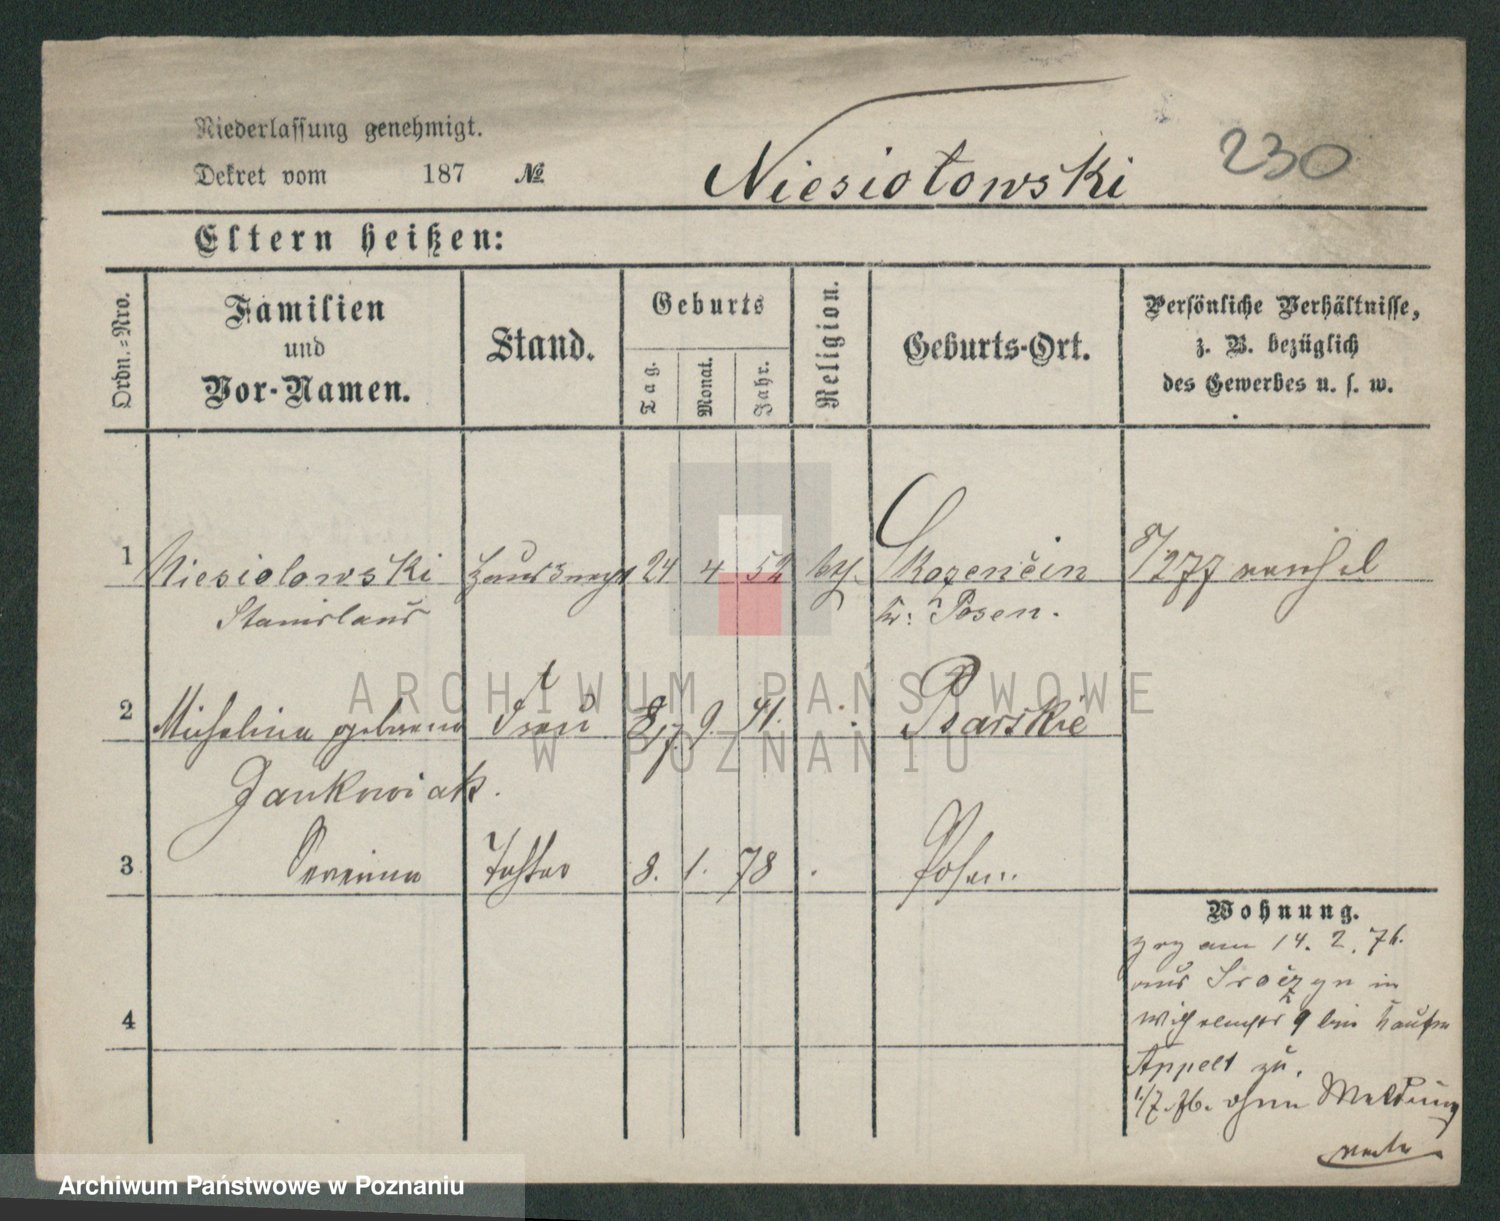 Niederlassung genehmigt.
Dekret vom 187 №
Niesiolowski
230
Eltern heißen:
Ordn.-Nro.
Familien
und
Vor-Namen.
Stand.
Geburts
Tag.
Monat.
Jahr.
Religion.
Geburts-Ort.
Persönliche Verhältnisse,
z. B. bezüglich
des Gewerbes u. s. w.
1 Niesiolowski Hausknecht 24 4 52 kth. 8/277
Stanislaus Kr. Posen.
2 Michalina geborene Frau 9. 41. Psarskie
Jankowiak.
3 Tochter 8. 1. 78 Posen.
4
Wohnung.
zog am 14. 2. 76.
aus in
9 bei
Appelt zu.
1/7. 76. ohne Meldung
ARCHIWUM PAŃSTWOWE
W POZNANIU
Archiwum Państwowe w Poznaniu